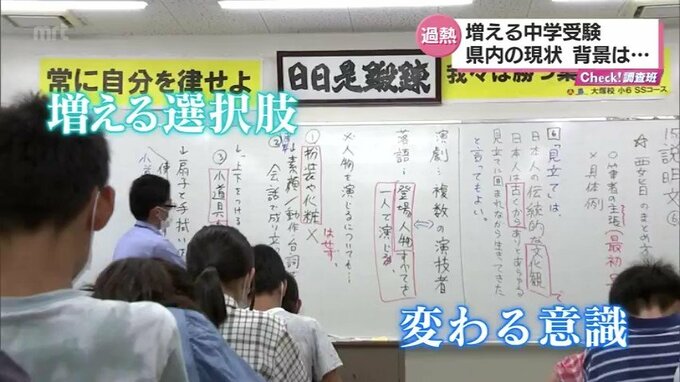 mrt
過熱
増える中学受験
県内の現状 背景は…
Check!調査班
常に自分を律せよ
日日是鍛錬
我々は勝つ集
大塚校 小6 SSコース
増える選択肢
説明文⑥
○筆者の主張(最初
×具体例
6「見立て」は、
日本人の伝統的な文化観
日本人は古くからありとあらゆる
見立てに囲まれながら生きてきた
と言ってもよい。
演劇…複数の演技者
落語…登場人物すべてを
一人で演じる
※人物を演じるについても…
①扮装や化粧×
はせず
②素顔/動作台詞
会話で成り立
③小道具
↓扇子で手拭い
変わる意識